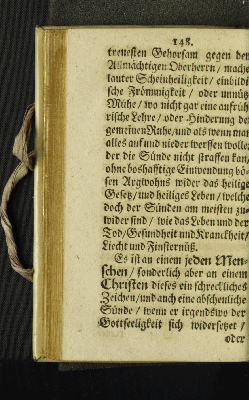 148.
treuesten Gehorsam gegen den
Allmächtigen Oberherrn / mache
lauter Scheinheiligkeit / einbildi-
sche Frömmigkeit / oder unnütze
Mühe / wo nicht gar eine aufrüh-
rische Lehre / oder Hinderung der
gemeinen Ruhe / und als wenn man
alles auf und nieder werffen wolle /
der die Sünde nicht straffen kan,
ohne boshafftige Einwendung bö-
sen Argwohns wider das heilige
Gesetz / und heiliges Leben / welche
doch der Sünden am meisten zu-
wider sind / wie das Leben und der
Tod / Gesundheit und Kranckheit /
Liecht und Finsternüß.
Es ist an einem jeden Men-
schen / sonderlich aber an einem
Christen dieses ein schreckliches
Zeichen / und auch eine abscheuliche
Sünde / wenn er irgendswo der
Gottseeligkeit sich widersetzet /
oder